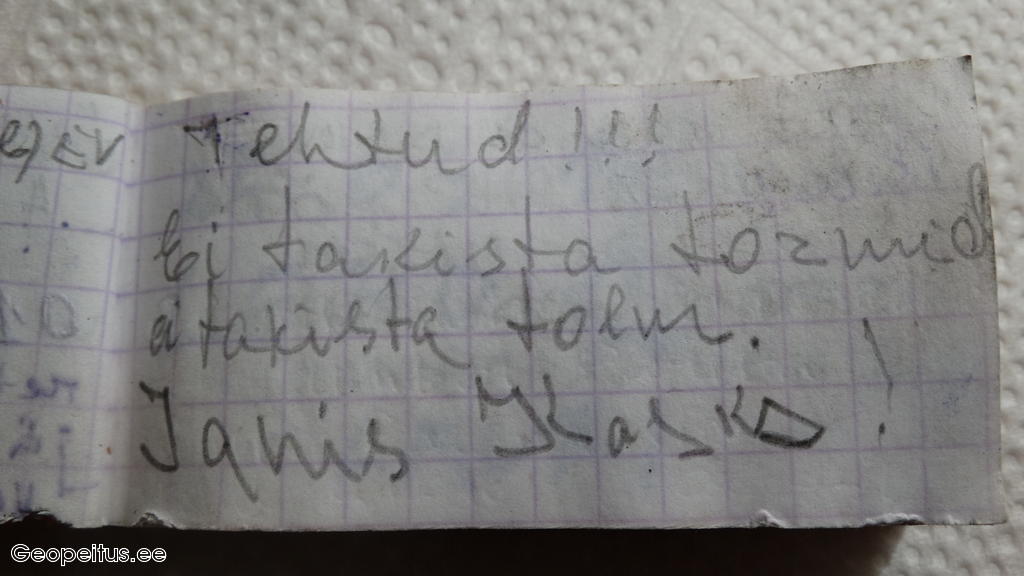 Tehtud!!!
Ei takista tormid
ei takista tolm.
Janis Kask!
Geopeitus.ee